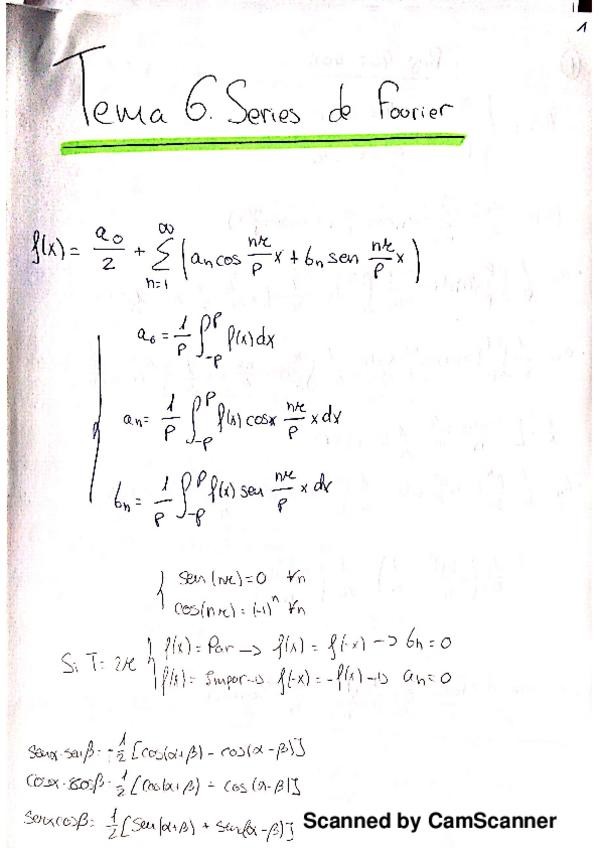 1
Tema 6. Series de Fourier
f(x) = a₀/2 + ∑_{n=1}^{∞} (aₙ cos nπ/p x + bₙ sen nπ/p x)
a₀ = 1/p ∫_{-p}^{p} f(x) dx
aₙ = 1/p ∫_{-p}^{p} f(x) cosx nπ/p x dx
bₙ = 1/p ∫_{-p}^{p} f(x) sen nπ/p x dx
sen(nπ) = 0 ∀n
cos(nπ) = (-1)ⁿ ∀n
Si T = 2π
f(x) = Par → f(x) = f(-x) → bₙ = 0
f(x) = Impar → f(-x) = -f(x) → aₙ = 0
senα·senβ = -1/2 [cos(α+β) - cos(α-β)]
cosα·cosβ = 1/2 [cos(α+β) + cos(α-β)]
senαcosβ = 1/2 [sen(α+β) + sen(α-β)]
Scanned by CamScanner